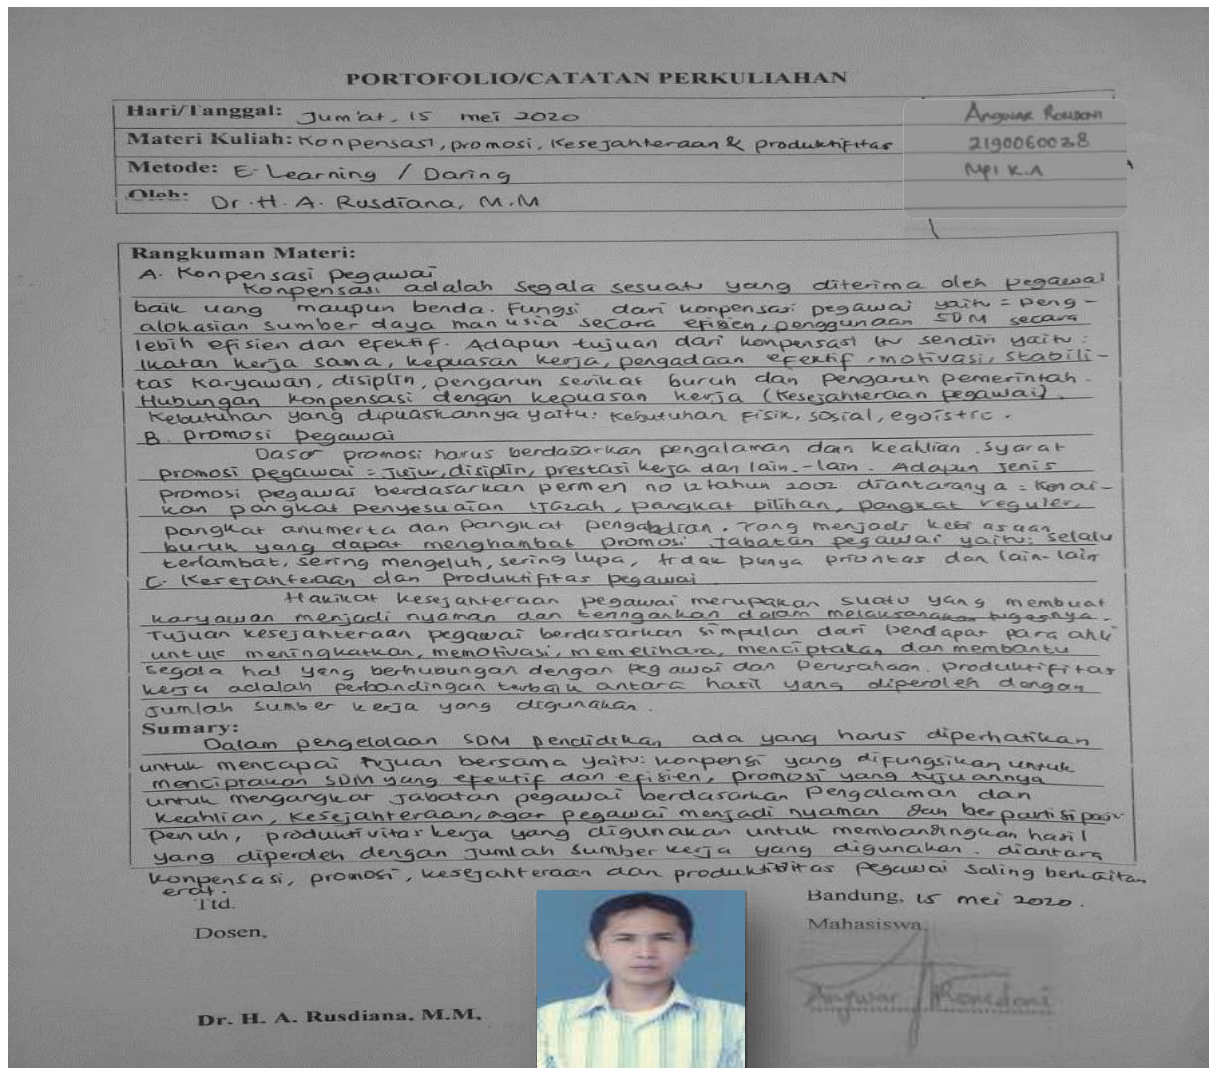 PORTOFOLIO/CATATAN PERKULIAHAN
Hari/Tanggal: Jum'at, 15 mei 2020
Angwar Romdoni
Materi Kuliah: Konpensasi, promosi, Kesejahteraan & produktifitas
2190060038
Metode: E-Learning / Daring
MPI K.A
Oleh: Dr. H. A. Rusdiana, M.M
Rangkuman Materi:
A. Konpensasi pegawai
Konpensasi adalah segala sesuatu yang diterima oleh pegawai
baik uang maupun benda. Fungsi dari konpensasi pegawai yaitu = peng-
alokasian sumber daya manusia secara efisien, penggunaan SDM secara
lebih efisien dan efektif. Adapun tujuan dari konpensasi itu sendiri yaitu :
Ikatan kerja sama, kepuasan kerja, pengadaan efektif, motivasi, stabili-
tas Karyawan, disiplin, pengaruh serikat buruh dan pengaruh pemerintah.
Hubungan konpensasi dengan kepuasan kerja (kesejahteraan pegawai).
Kebutuhan yang dipuaskannya yaitu: kebutuhan fisik, sosial, egoistic.
B. promosi pegawai
Dasar promosi harus berdasarkan pengalaman dan keahlian. Syarat
promosi pegawai = Jujur, disiplin, prestasi kerja dan lain-lain. Adapun jenis
promosi pegawai berdasarkan permen no 12 tahun 2002 diantaranya = kenai-
kan pangkat penyesuaian ijazah, pangkat pilihan, pangkat reguler,
pangkat anumerta dan pangkat pengabdian. Yang menjadi kebiasaan
buruk yang dapat menghambat promosi jabatan pegawai yaitu: selalu
terlambat, sering mengeluh, sering lupa, tidak punya prioritas dan lain-lain
C. Kesejahteraan dan produktifitas pegawai
Hakikat kesejahteraan pegawai merupakan suatu yang membuat
karyawan menjadi nyaman dan teringankan dalam melaksanakan tugasnya.
Tujuan kesejahteraan pegawai berdasarkan simpulan dari pendapat para ahli
untuk meningkatkan, memotivasi, memelihara, menciptakan dan membantu
segala hal yang berhubungan dengan pegawai dan perusahaan. Produktifitas
kerja adalah perbandingan terbaik antara hasil yang diperoleh dengan
jumlah sumber kerja yang digunakan.
Sumary:
Dalam pengelolaan SDM pendidikan ada yang harus diperhatikan
untuk mencapai tujuan bersama yaitu: konpensi yang difungsikan untuk
menciptakan SDM yang efektif dan efisien, promosi yang tujuannya
untuk mengangkat jabatan pegawai berdasarkan pengalaman dan
keahlian, kesejahteraan, agar pegawai menjadi nyaman dan berpartisipasi
penuh, produktivitas kerja yang digunakan untuk membandingkan hasil
yang diperoleh dengan jumlah sumber kerja yang digunakan. diantara
konpensasi, promosi, kesejahteraan dan produktibitas pegawai saling berkaitan
erat.
Ttd.
Bandung, 15 mei 2020.
Dosen,
Mahasiswa,
Angwar Romdoni
Dr. H. A. Rusdiana, M.M,